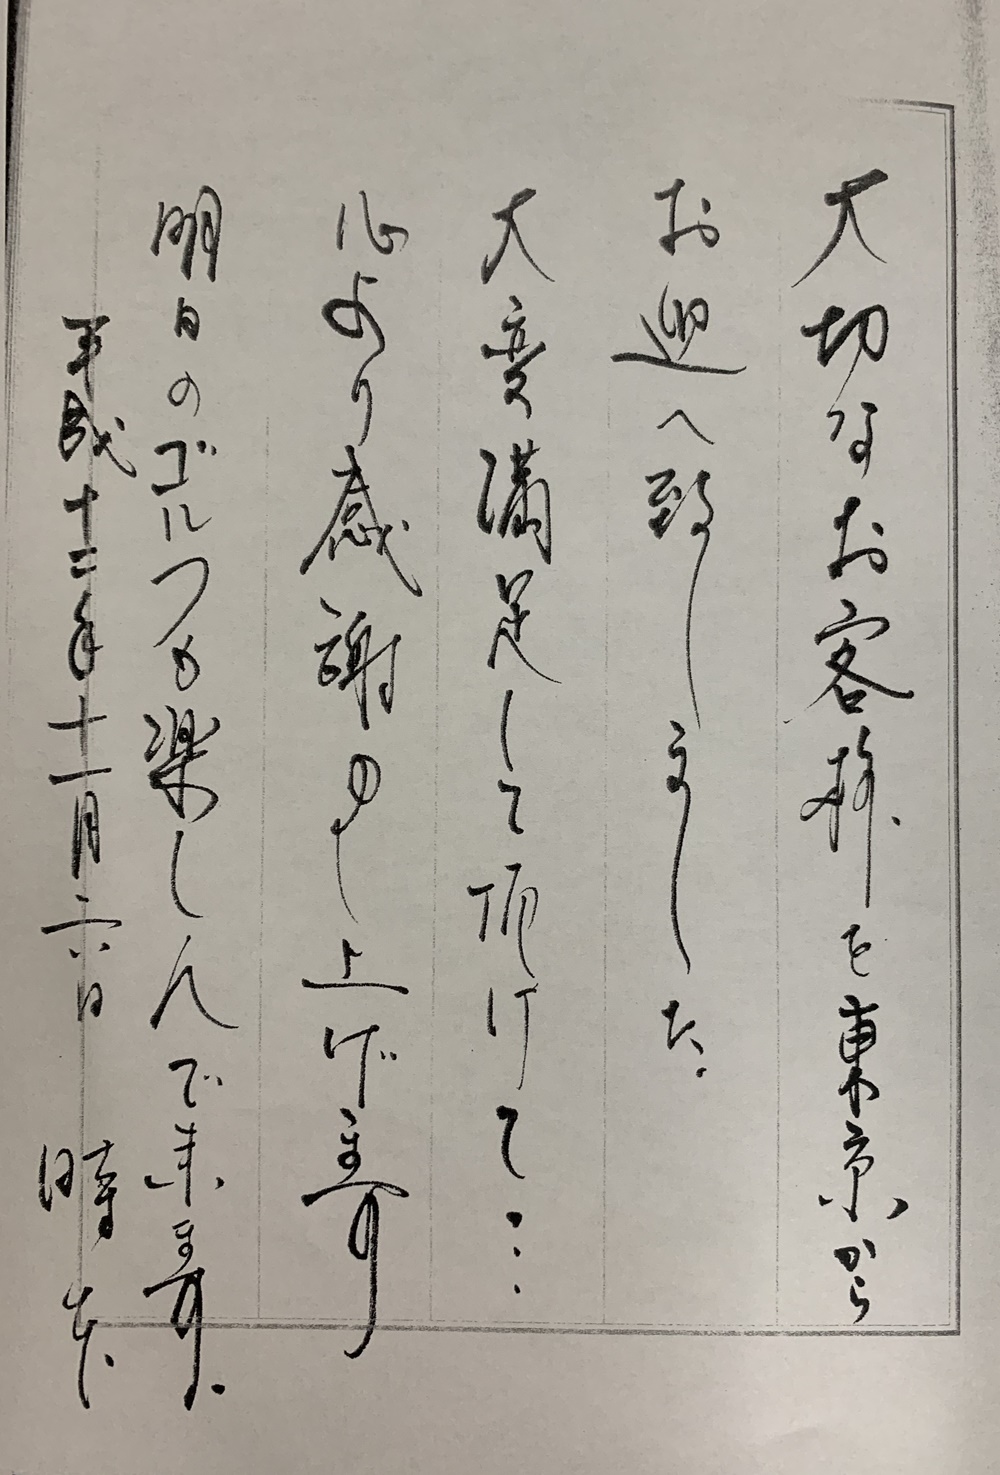 大切なお客様を東京から
お迎へ致しました。
大変満足して頂けて…
心より感謝申し上げます
明日のゴルフも楽しんで来ます。
平成十二年十一月六日 時本